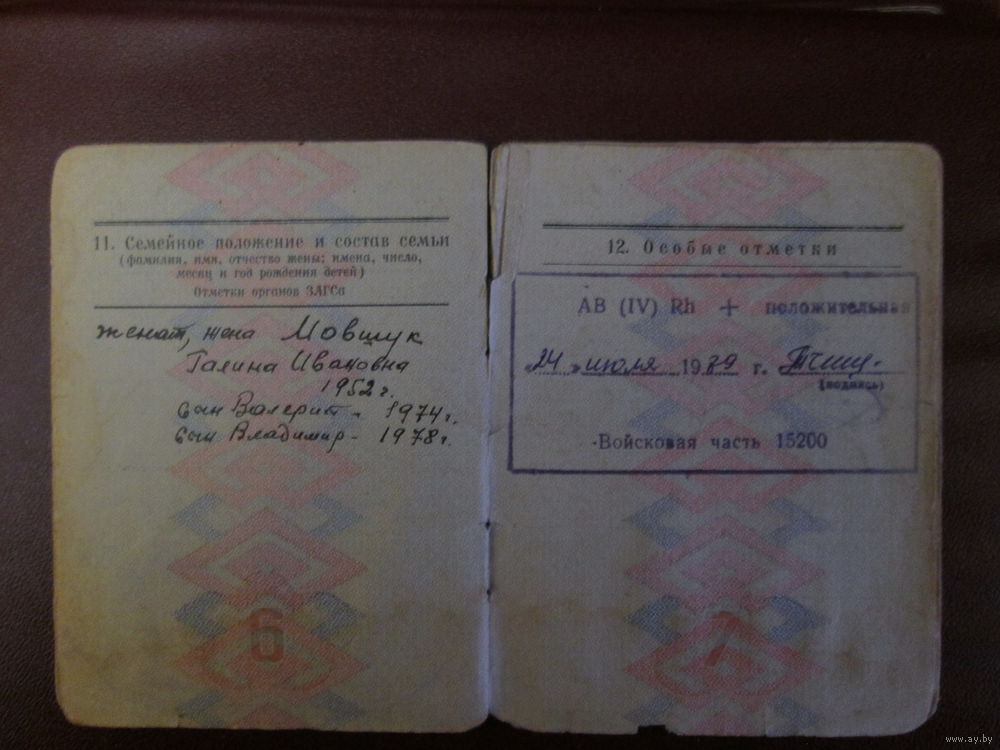 11. Семейное положение и состав семьи
(фамилия, имя, отчество жены; имена, число,
месяц и год рождения детей)
Отметки органов ЗАГСа
женат, жена Мовщук
Галина Ивановна
1952 г.
сын Валерий - 1974 г.
сын Владимир - 1978 г.
6
12. Особые отметки
АВ (IV) Rh + положительная
"24" июля 1989 г.
(подпись)
Войсковая часть 15200
7
www.ay.by